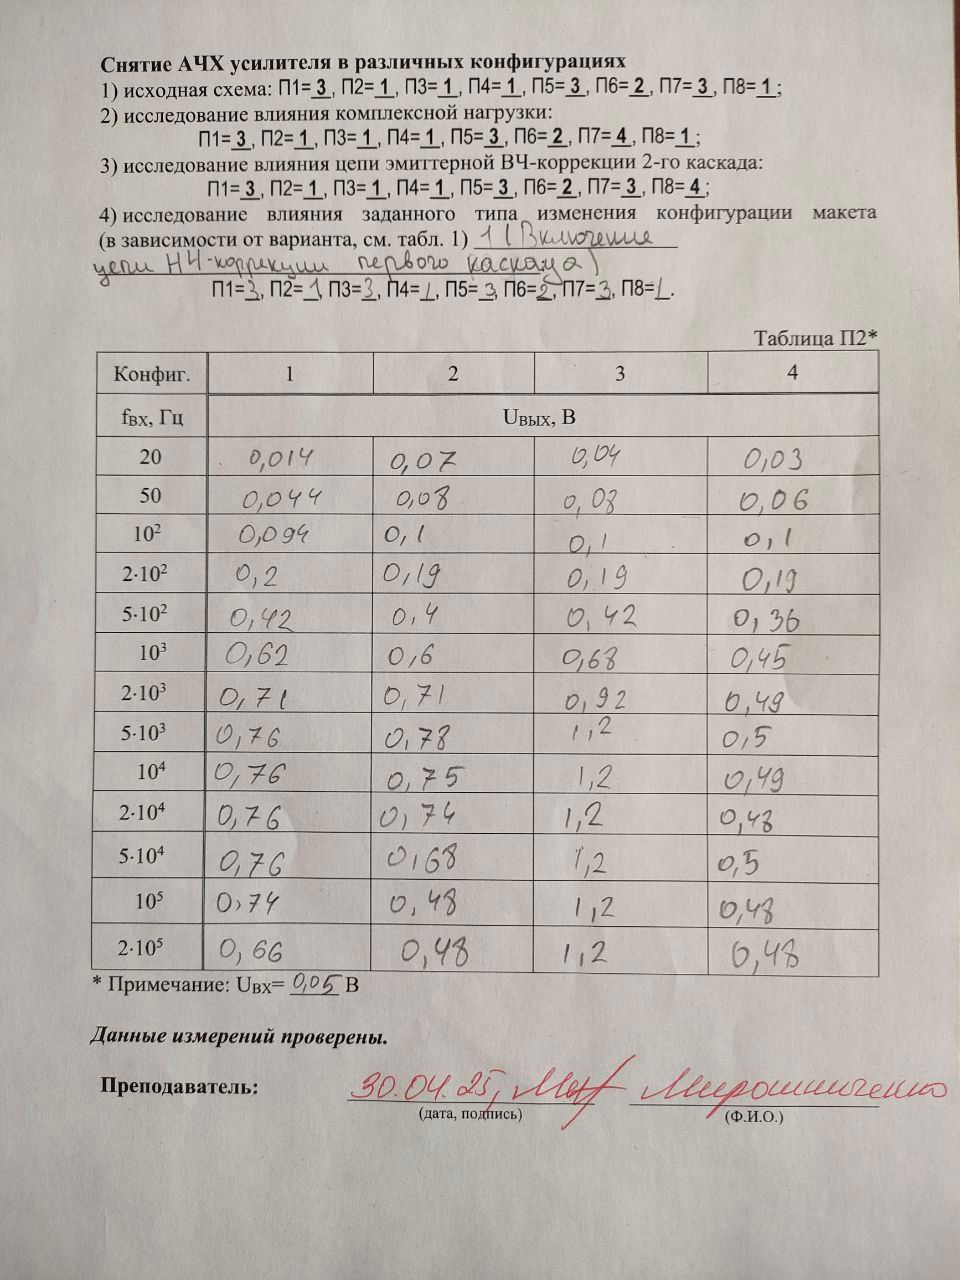 Снятие АЧХ усилителя в различных конфигурациях
1) исходная схема: П1=3, П2=1, П3=1, П4=1, П5=3, П6=2, П7=3, П8=1;
2) исследование влияния комплексной нагрузки:
П1=3, П2=1, П3=1, П4=1, П5=3, П6=2, П7=4, П8=1;
3) исследование влияния цепи эмиттерной ВЧ-коррекции 2-го каскада:
П1=3, П2=1, П3=1, П4=1, П5=3, П6=2, П7=3, П8=4;
4) исследование влияния заданного типа изменения конфигурации макета
(в зависимости от варианта, см. табл. 1) 1 (Включение
цепи НЧ-коррекции первого каскада)
П1=3, П2=1, П3=3, П4=1, П5=3, П6=2, П7=3, П8=1.
Таблица П2*
Конфиг. 1 2 3 4
fвх, Гц Uвых, В
20 0,014 0,07 0,04 0,03
50 0,044 0,08 0,08 0,06
10² 0,094 0,1 0,1 0,1
2·10² 0,2 0,19 0,19 0,19
5·10² 0,42 0,4 0,42 0,36
10³ 0,62 0,6 0,68 0,45
2·10³ 0,71 0,71 0,92 0,49
5·10³ 0,76 0,78 1,2 0,5
10⁴ 0,76 0,75 1,2 0,49
2·10⁴ 0,76 0,74 1,2 0,48
5·10⁴ 0,76 0,68 1,2 0,5
10⁵ 0,74 0,48 1,2 0,48
2·10⁵ 0,66 0,48 1,2 0,48
* Примечание: Uвх= 0,05 В
Данные измерений проверены.
Преподаватель: 30.04.25, Мирошниченко
(дата, подпись) (Ф.И.О.)